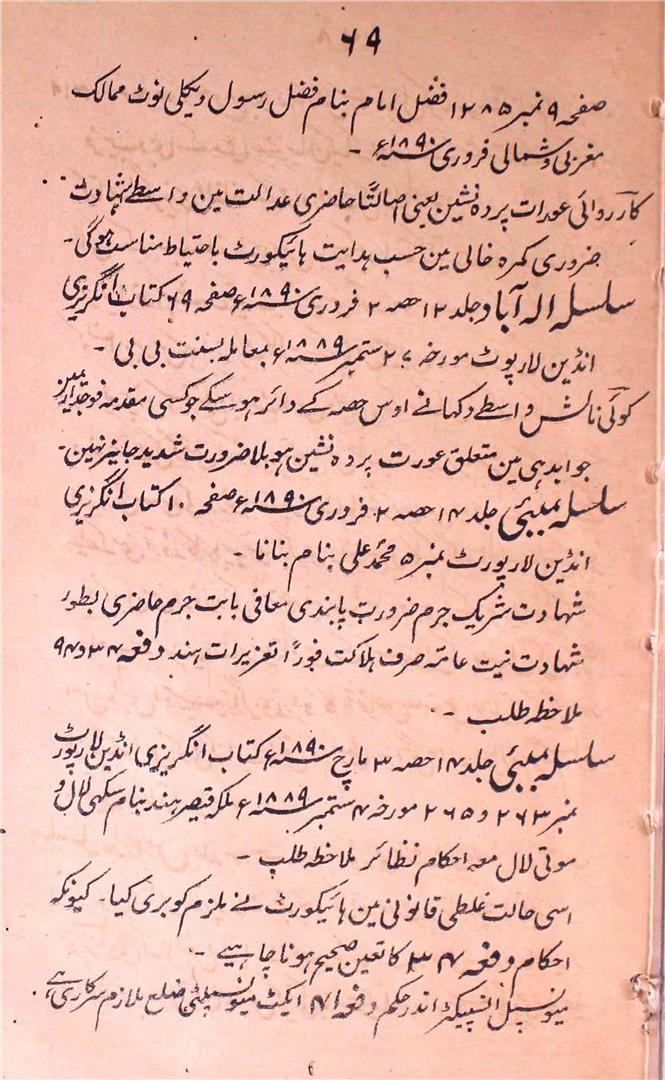 ۶۹
صفحہ ۹ نمبر ۱۲۸۵ فضل امام بنام فضل رسول ویکلی نوٹ ممالک
مغربی و شمالی فروری سنہ ۱۸۹۰ء ۔
کارروائی عورات پردہ نشین یعنی اصالتاً حاضری عدالت مین واسطے شہادت
ضروری کمرہ خالی مین حسب ہدایت ہائیکورٹ باحتیاط مناسب ہوگی ۔
سلسلہ الہ آباد جلد ۱۲ حصہ ۲ فروری سنہ ۱۸۹۰ء صفحہ ۶۹ کتاب انگریزی
انڈین لارپوٹ مورخہ ۲۰ ستمبر سنہ ۱۸۸۹ء بمعاملہ بسنت بی بی ۔
کوئی نالش واسطے دکھانے اوس حصہ کے دائر ہوسکے جو کسی مقدمہ فوجداری مین
جوابدہی مین متعلق عورت پردہ نشین ہو بلا ضرورت شدید جایز نہین ۔
سلسلہ بمبئی جلد ۱۴ حصہ ۲ فروری سنہ ۱۸۹۰ء صفحہ ۱۰ کتاب انگریزی
انڈین لارپورٹ نمبر ۵ محمد علی بنام بنانا ۔
شہادت شریک جرم ضرورت پابندی معافی بابت جرم حاضری بطور
شہادت نیت عامہ صرف ہلاکت فوراً تعزیرات ہند دفعہ ۳۴ و ۹۴
ملاحظہ طلب ۔
سلسلہ بمبئی جلد ۱۴ حصہ ۳ مارچ سنہ ۱۸۹۰ء کتاب انگریزی انڈین لارپورٹ
نمبر ۲۶۳ و ۲۶۵ مورخہ ۴ ستمبر سنہ ۱۸۸۹ء ملکہ قیصر ہند بنام سکھی لال و
موتی لال معہ احکام نظائر ملاحظہ طلب ۔
اسی حالت غلطی قانونی مین ہائیکورٹ نے ملزم کو بری کیا ۔ کیونکہ
احکام دفعہ ۳۴ کا تعین صحیح ہونا چاہیے ۔
میونسپل انسپیکٹر اندر حکم دفعہ ۴۱ ایکٹ میونسپلٹی ضلع ملازم سرکاری ہے